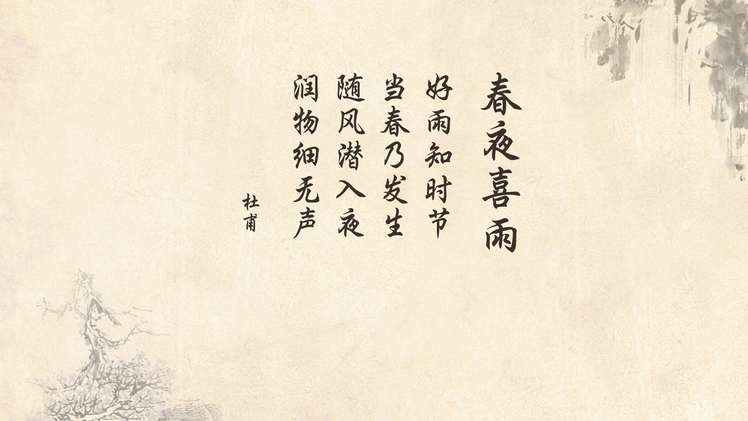 春夜喜雨
好雨知时节
当春乃发生
随风潜入夜
润物细无声
杜甫